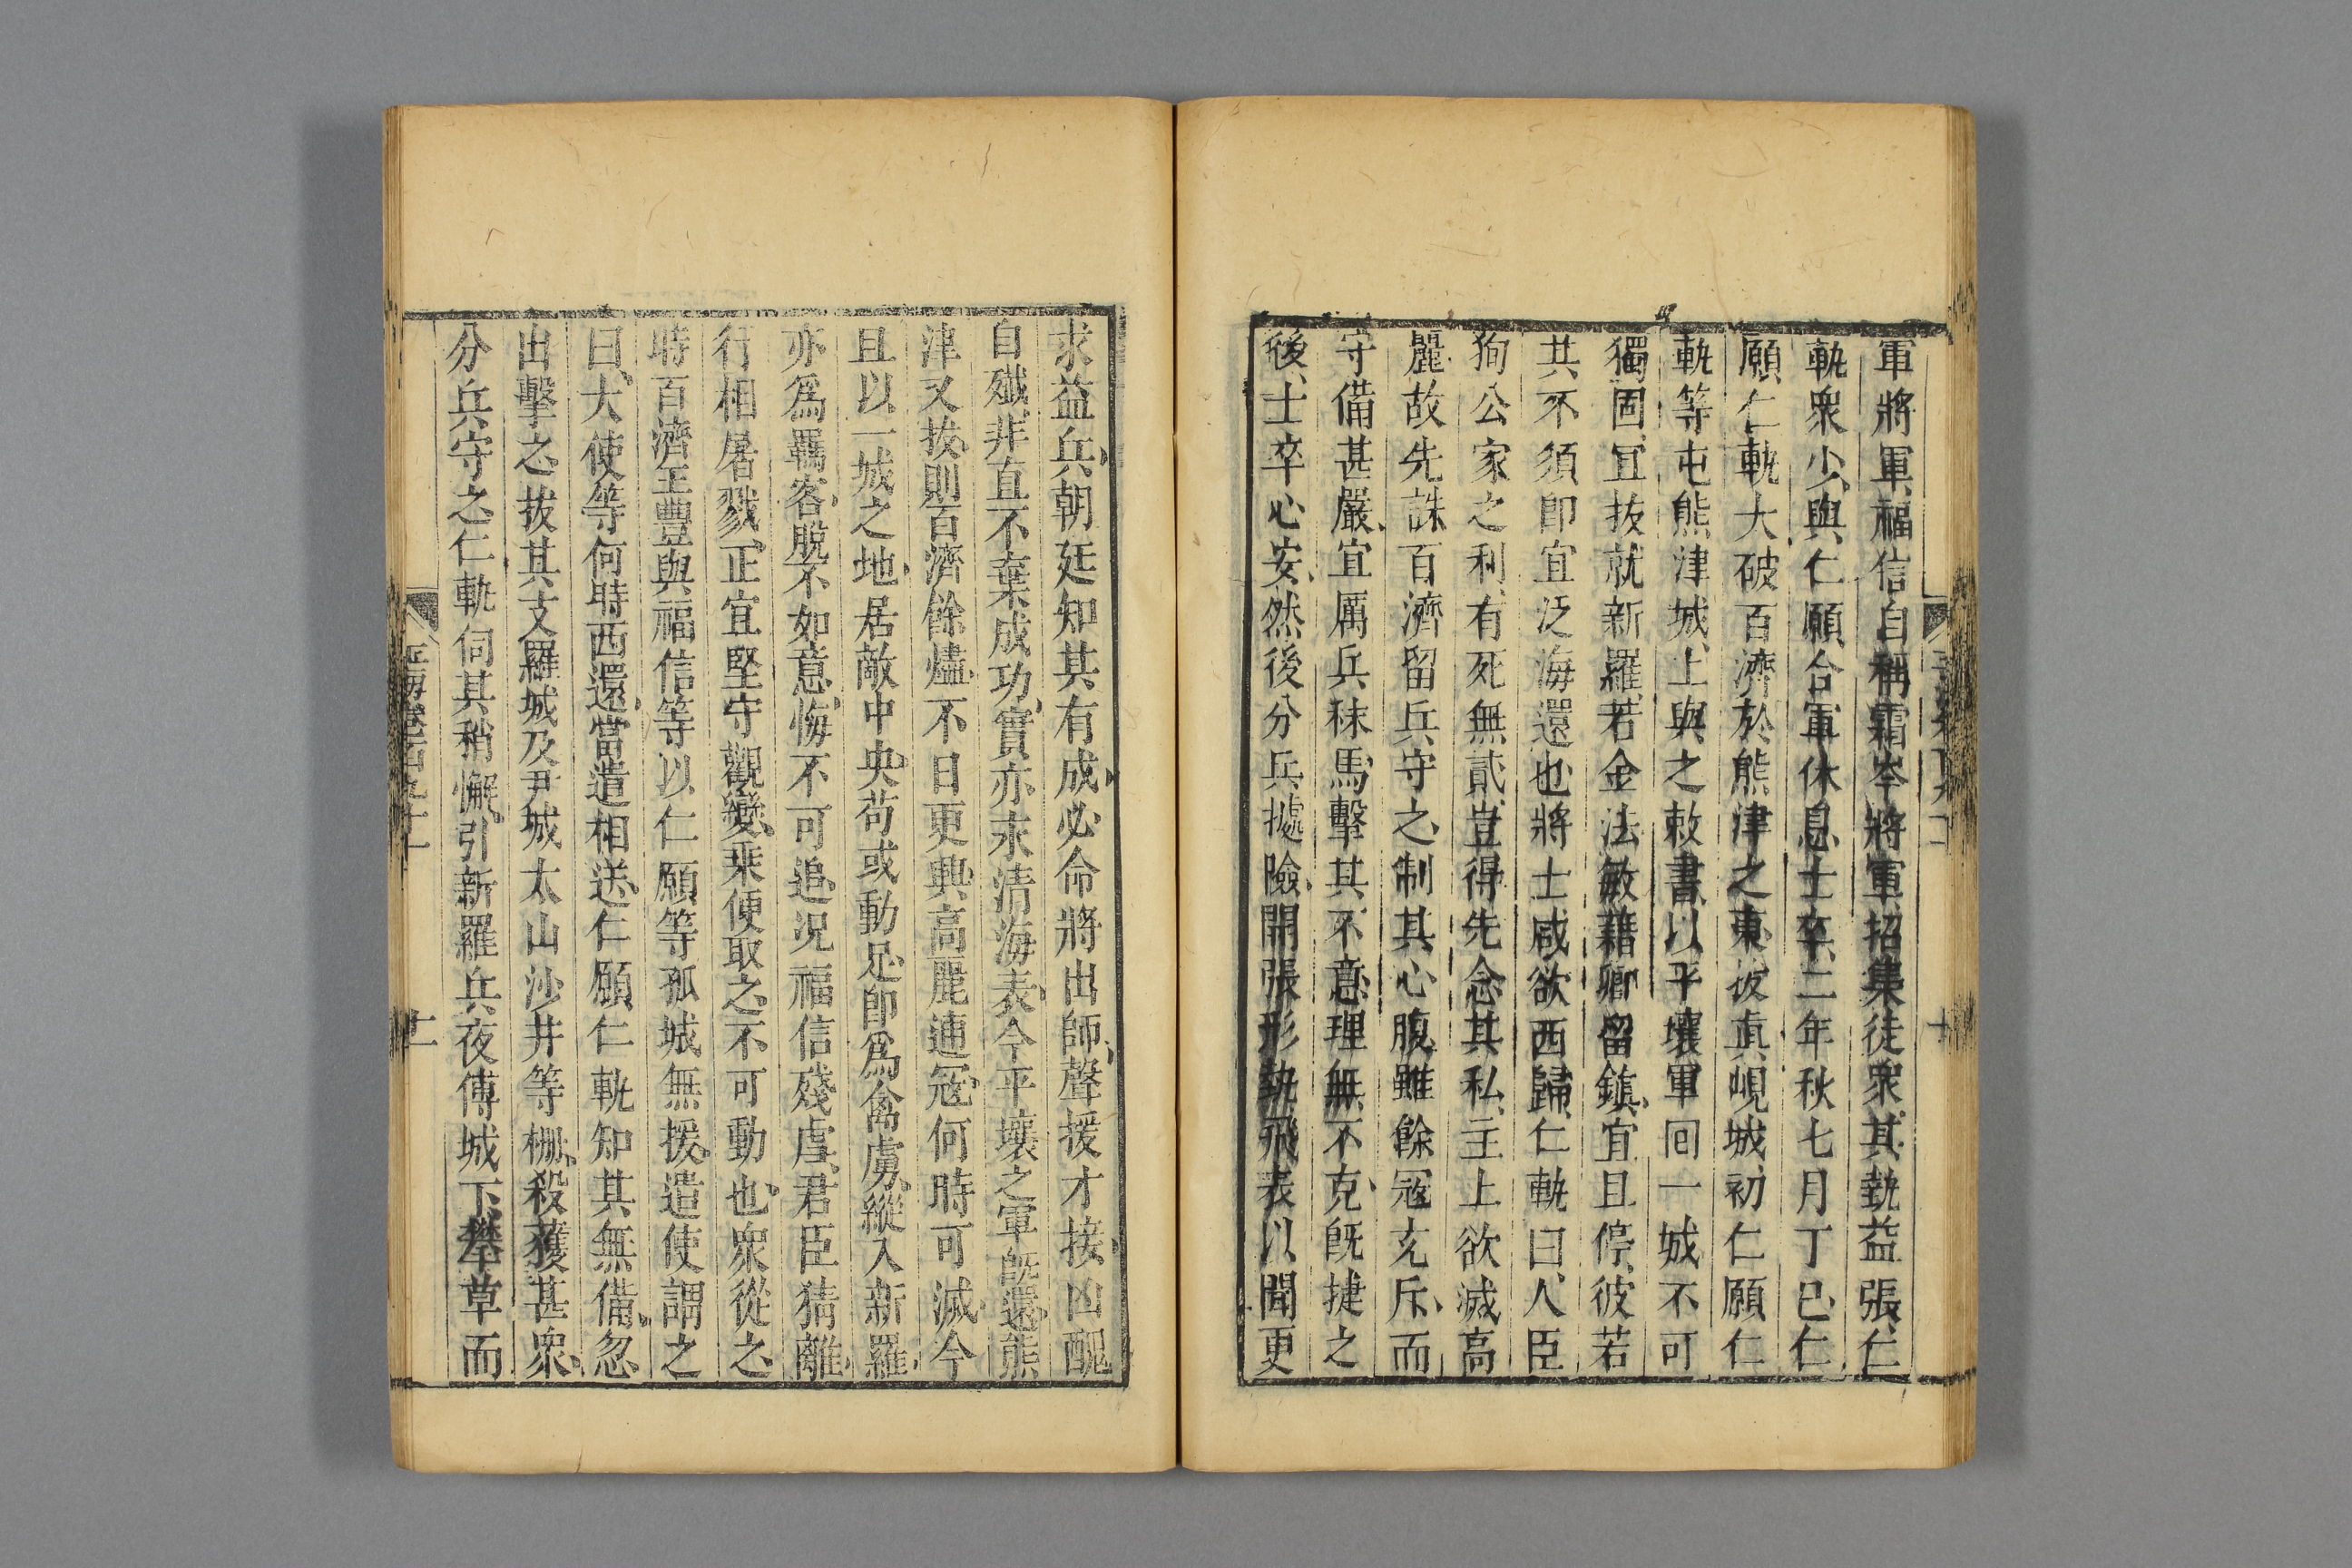 軍將軍、福信自稱霜岑將軍招集徒衆其埶益張、仁
軌衆少、與仁願合軍休息士卒、二年秋七月丁巳、仁
願、仁軌大破百濟於熊津之東、拔真峴城、初仁願仁
軌等屯熊津城、上與之敕書、以平壤軍回一城不可
獨固、宜拔就新羅、若金法敏藉卿留鎮、宜且停、彼若
其不須卽宜泛海還也將士咸欲西歸、仁軌曰、人臣
狥公家之利、有死無貳、豈得先念其私、主上欲滅高
麗故先誅百濟留兵守之、制其心腹雖餘寇充斥、而
守備甚嚴、宜厲兵秣馬擊其不意理無不克、旣捷之
後、士卒心安、然後分兵據險、開張形執飛表以聞更
求益兵、朝廷知其有成、必命將出師、聲援才接、凶醜
自殲、非直不棄成功、實亦永清海表、今平壤之軍旣還、熊
津又拔、則百濟餘燼、不日更興、高麗逋寇、何時可滅、今
且以一城之地、居敵中央、苟或動足、卽爲禽虜、縱入新羅、
亦爲羈客、脫不如意、悔不可追、況福信殘虐、君臣猜離、
行相屠戮、正宜堅守觀變、乘便取之、不可動也、衆從之、
時百濟王豐與福信等以仁願等孤城無援、遣使謂之
曰、大使等何時西還、當遣相送、仁願仁軌知其無備、忽
出擊之、拔其支羅城及尹城太山沙井等柵、殺獲甚衆、
分兵守之、仁軌伺其稍懈、引新羅兵、夜傅城下、攀草而
十一